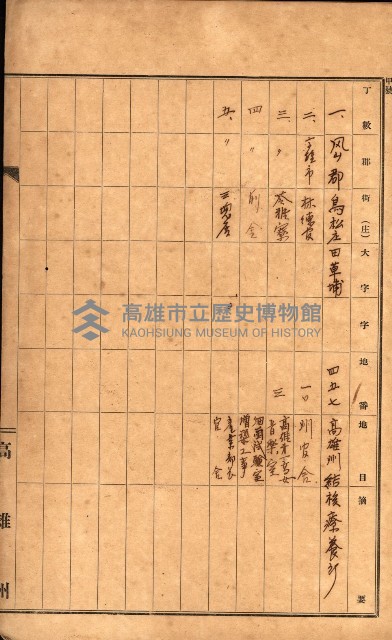 甲號
丁數 郡街(庄)大字 字 地番 地目 摘要
一、 凤山郡鳥松庄田草埔 四五七 高雄州結核療養所
二、 高雄市 林德官 一口 州官舍
三、 〃 苓雅寮 三 高雄第一高女音樂室
四 〃 前金 細菌試驗室增築工事
五、〃 三塊厝 產業部長官舍
高雄州
高雄市立歷史博物館
KAOHSIUNG MUSEUM OF HISTORY